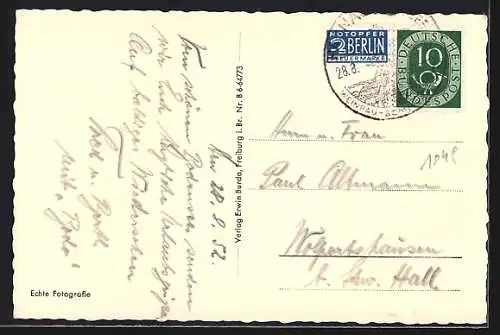 den 28.8.52.
Vom schönen Bodensee senden
wir Euch herzliche Urlaubsgrüße
Auf baldiges Wiedersehen
Echte Fotografie
Verlag Erwin Burda, Freiburg i. Br. Nr. B 6-64773
NOTOPFER
2 BERLIN
STEUERMARKE
28.8.
DEUTSCHE BUNDESPOST
10
1048
Herrn u. Frau
Paul Altmann
Wolpertshausen
b. Schw. Hall